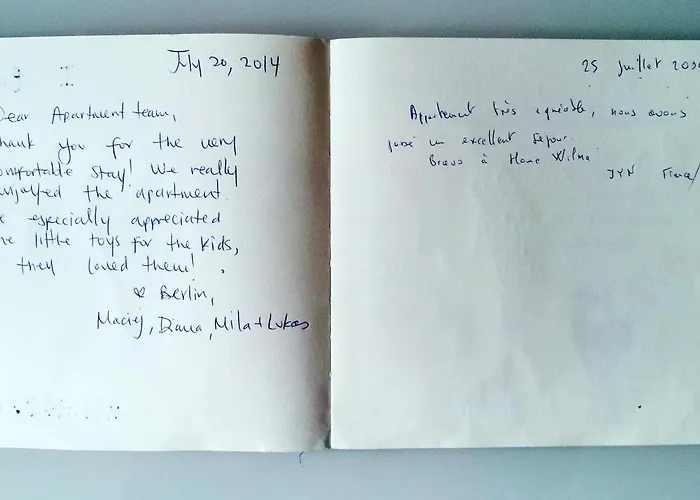 July 20, 2014
Dear Apartment team,
hank you for the very
omfortable stay! We really
enjoyed the apartment.
e especially appreciated
he little toys for the kids,
they loved them!
Berlin,
Maciej, Diana, Mila + Lukas
25 Juillet
Appartement très agréable, nous avons
passé un excellent sejour.
Bravo à Home Wilma